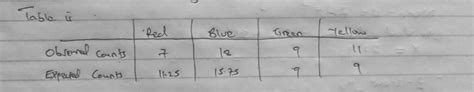 Table is
Red Blue Green Yellow
Observed Counts 7 12 9 11
Expected Counts 11.25 15.75 9 9